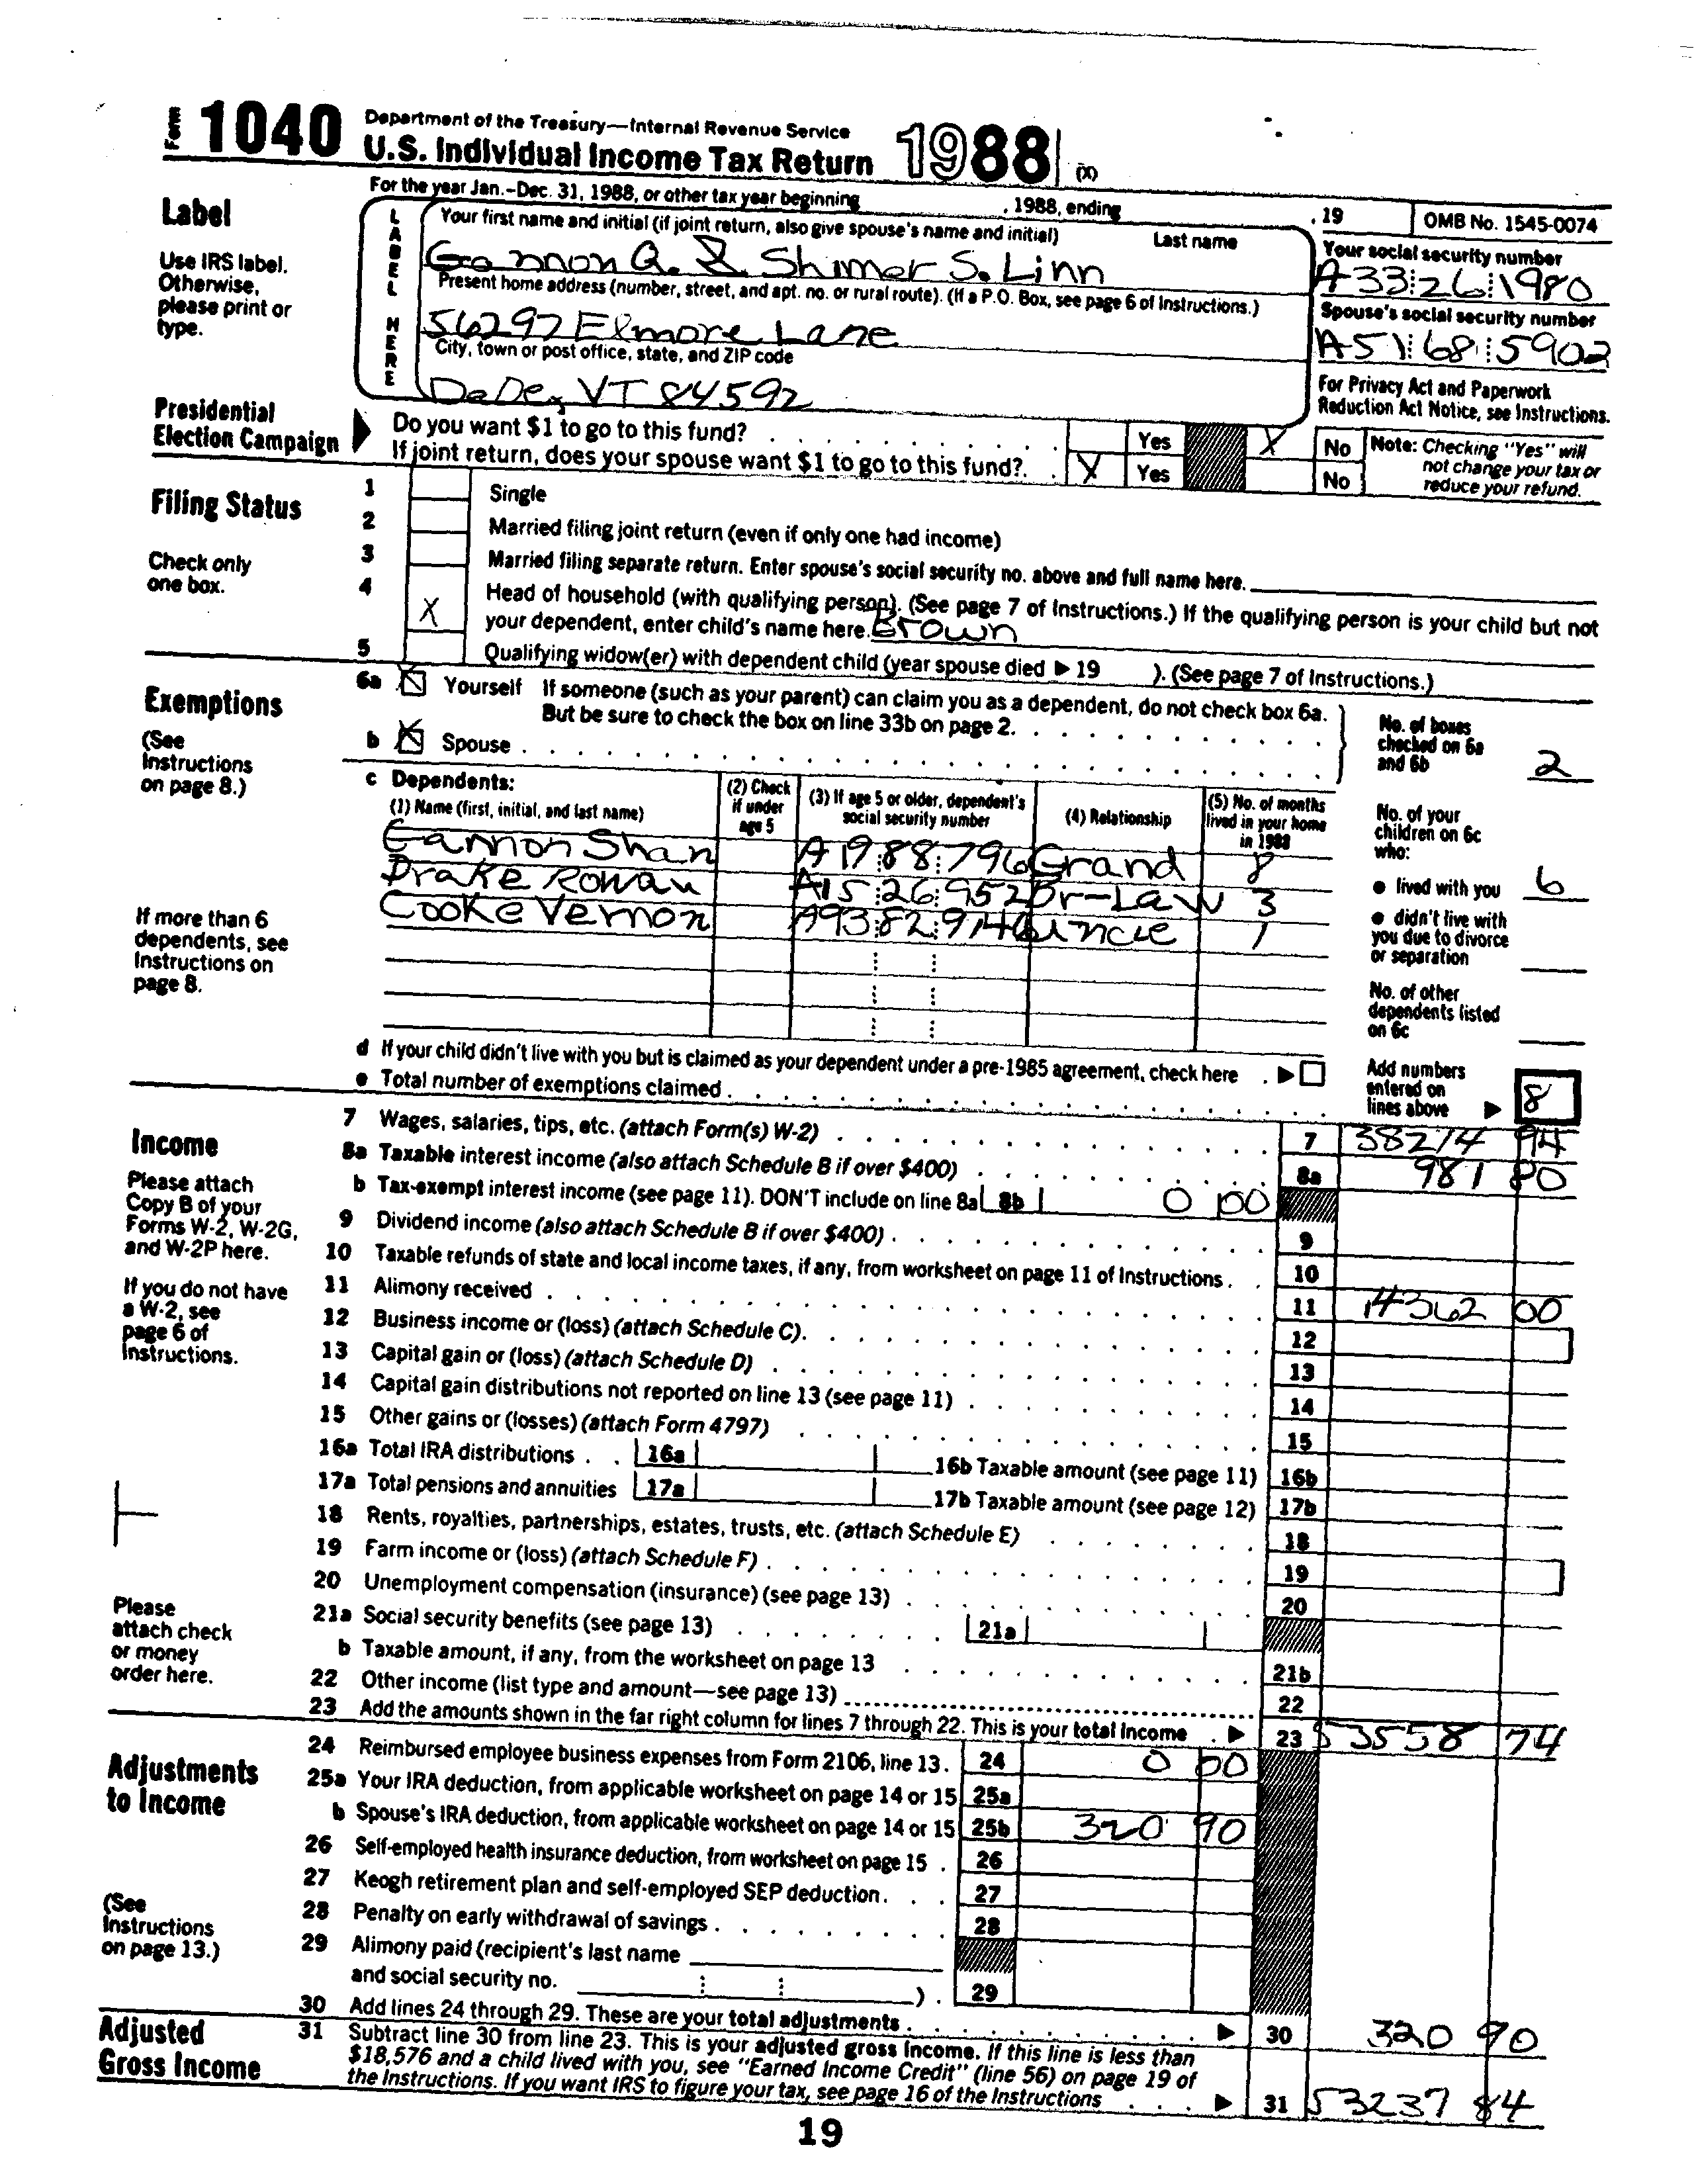 Form 1040 Department of the Treasury—Internal Revenue Service
U.S. Individual Income Tax Return 1988 (X)
For the year Jan.-Dec. 31, 1988, or other tax year beginning , 1988, ending , 19 OMB No. 1545-0074
Label
Use IRS label. Otherwise, please print or type.
LABEL HERE
Your first name and initial (if joint return, also give spouse's name and initial) Last name
Gannon Q. & Shimer S. Linn
Your social security number
A33 26 1980
Present home address (number, street, and apt. no. or rural route). (If a P.O. Box, see page 6 of Instructions.)
56297 Elmore Lane
Spouse's social security number
A51 68 5902
City, town or post office, state, and ZIP code
VT 84592
For Privacy Act and Paperwork Reduction Act Notice, see Instructions.
Presidential Election Campaign
Do you want $1 to go to this fund? Yes X No
If joint return, does your spouse want $1 to go to this fund? X Yes No
Note: Checking "Yes" will not change your tax or reduce your refund.
Filing Status
Check only one box.
1 Single
2 Married filing joint return (even if only one had income)
3 Married filing separate return. Enter spouse's social security no. above and full name here.
4 X Head of household (with qualifying person). (See page 7 of Instructions.) If the qualifying person is your child but not
your dependent, enter child's name here. Brown
5 Qualifying widow(er) with dependent child (year spouse died ▶ 19 ). (See page 7 of Instructions.)
Exemptions
(See Instructions on page 8.)
6a X Yourself If someone (such as your parent) can claim you as a dependent, do not check box 6a.
But be sure to check the box on line 33b on page 2.
b X Spouse
No. of boxes checked on 6a and 6b 2
c Dependents:
(1) Name (first, initial, and last name) (2) Check if under age 5 (3) If age 5 or older, dependent's social security number (4) Relationship (5) No. of months lived in your home in 1988
Shan A19 88 796 Grand 8
Drake Rowan A15 26 952 Br-Law 3
Cooke Vernon A93 82 9146 Uncle 1
If more than 6 dependents, see Instructions on page 8.
No. of your children on 6c who:
● lived with you 6
● didn't live with you due to divorce or separation
No. of other dependents listed on 6c
d If your child didn't live with you but is claimed as your dependent under a pre-1985 agreement, check here ▶
e Total number of exemptions claimed
Add numbers entered on lines above ▶ 8
Income
Please attach Copy B of your Forms W-2, W-2G, and W-2P here.
If you do not have a W-2, see page 6 of Instructions.
Please attach check or money order here.
7 Wages, salaries, tips, etc. (attach Form(s) W-2) 7 38214 94
8a Taxable interest income (also attach Schedule B if over $400) 8a 981 80
b Tax-exempt interest income (see page 11). DON'T include on line 8a 8b 0 00
9 Dividend income (also attach Schedule B if over $400) 9
10 Taxable refunds of state and local income taxes, if any, from worksheet on page 11 of Instructions 10
11 Alimony received 11 14362 00
12 Business income or (loss) (attach Schedule C) 12
13 Capital gain or (loss) (attach Schedule D) 13
14 Capital gain distributions not reported on line 13 (see page 11) 14
15 Other gains or (losses) (attach Form 4797) 15
16a Total IRA distributions 16a 16b Taxable amount (see page 11) 16b
17a Total pensions and annuities 17a 17b Taxable amount (see page 12) 17b
18 Rents, royalties, partnerships, estates, trusts, etc. (attach Schedule E) 18
19 Farm income or (loss) (attach Schedule F) 19
20 Unemployment compensation (insurance) (see page 13) 20
21a Social security benefits (see page 13) 21a
b Taxable amount, if any, from the worksheet on page 13 21b
22 Other income (list type and amount—see page 13) 22
23 Add the amounts shown in the far right column for lines 7 through 22. This is your total income ▶ 23 53558 74
Adjustments to Income
(See Instructions on page 13.)
24 Reimbursed employee business expenses from Form 2106, line 13. 24 0 00
25a Your IRA deduction, from applicable worksheet on page 14 or 15 25a
b Spouse's IRA deduction, from applicable worksheet on page 14 or 15 25b 320 90
26 Self-employed health insurance deduction, from worksheet on page 15 26
27 Keogh retirement plan and self-employed SEP deduction 27
28 Penalty on early withdrawal of savings 28
29 Alimony paid (recipient's last name
and social security no. ) 29
30 Add lines 24 through 29. These are your total adjustments ▶ 30 320 90
Adjusted Gross Income
31 Subtract line 30 from line 23. This is your adjusted gross income. If this line is less than
$18,576 and a child lived with you, see "Earned Income Credit" (line 56) on page 19 of
the Instructions. If you want IRS to figure your tax, see page 16 of the Instructions ▶ 31 53237 84
19